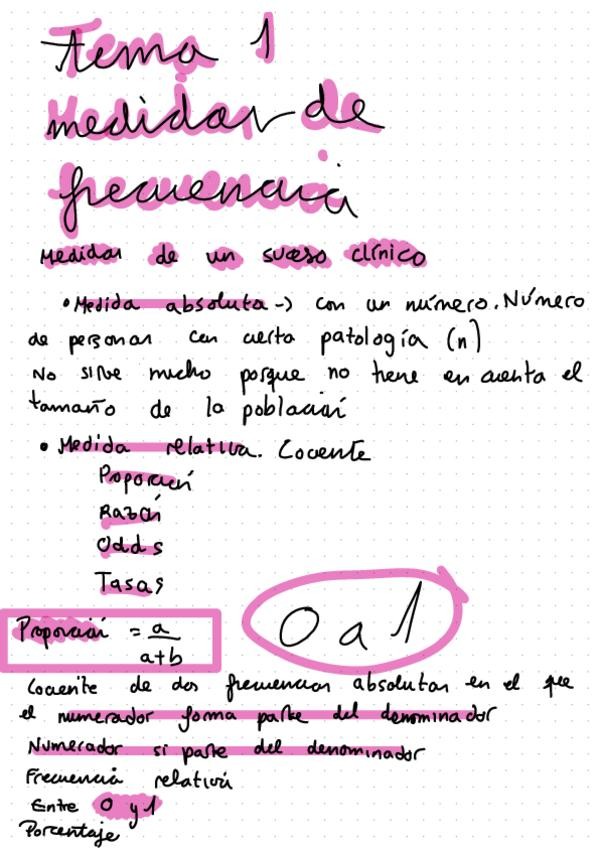 Tema 1
Medidas de
frecuencia
Medidas de un suceso clínico
• Medida absoluta -> con un número. Número
de personas con cierta patología (n)
No sirve mucho porque no tiene en cuenta el
tamaño de la población
• Medida relativa. Cociente
Proporción
Razón
Odds
Tasas
Proporción = a/(a+b)
0 a 1
Cociente de dos frecuencias absolutas en el que
el numerador forma parte del denominador
Numerador si parte del denominador
Frecuencia relativa
Entre 0 y 1
Porcentaje